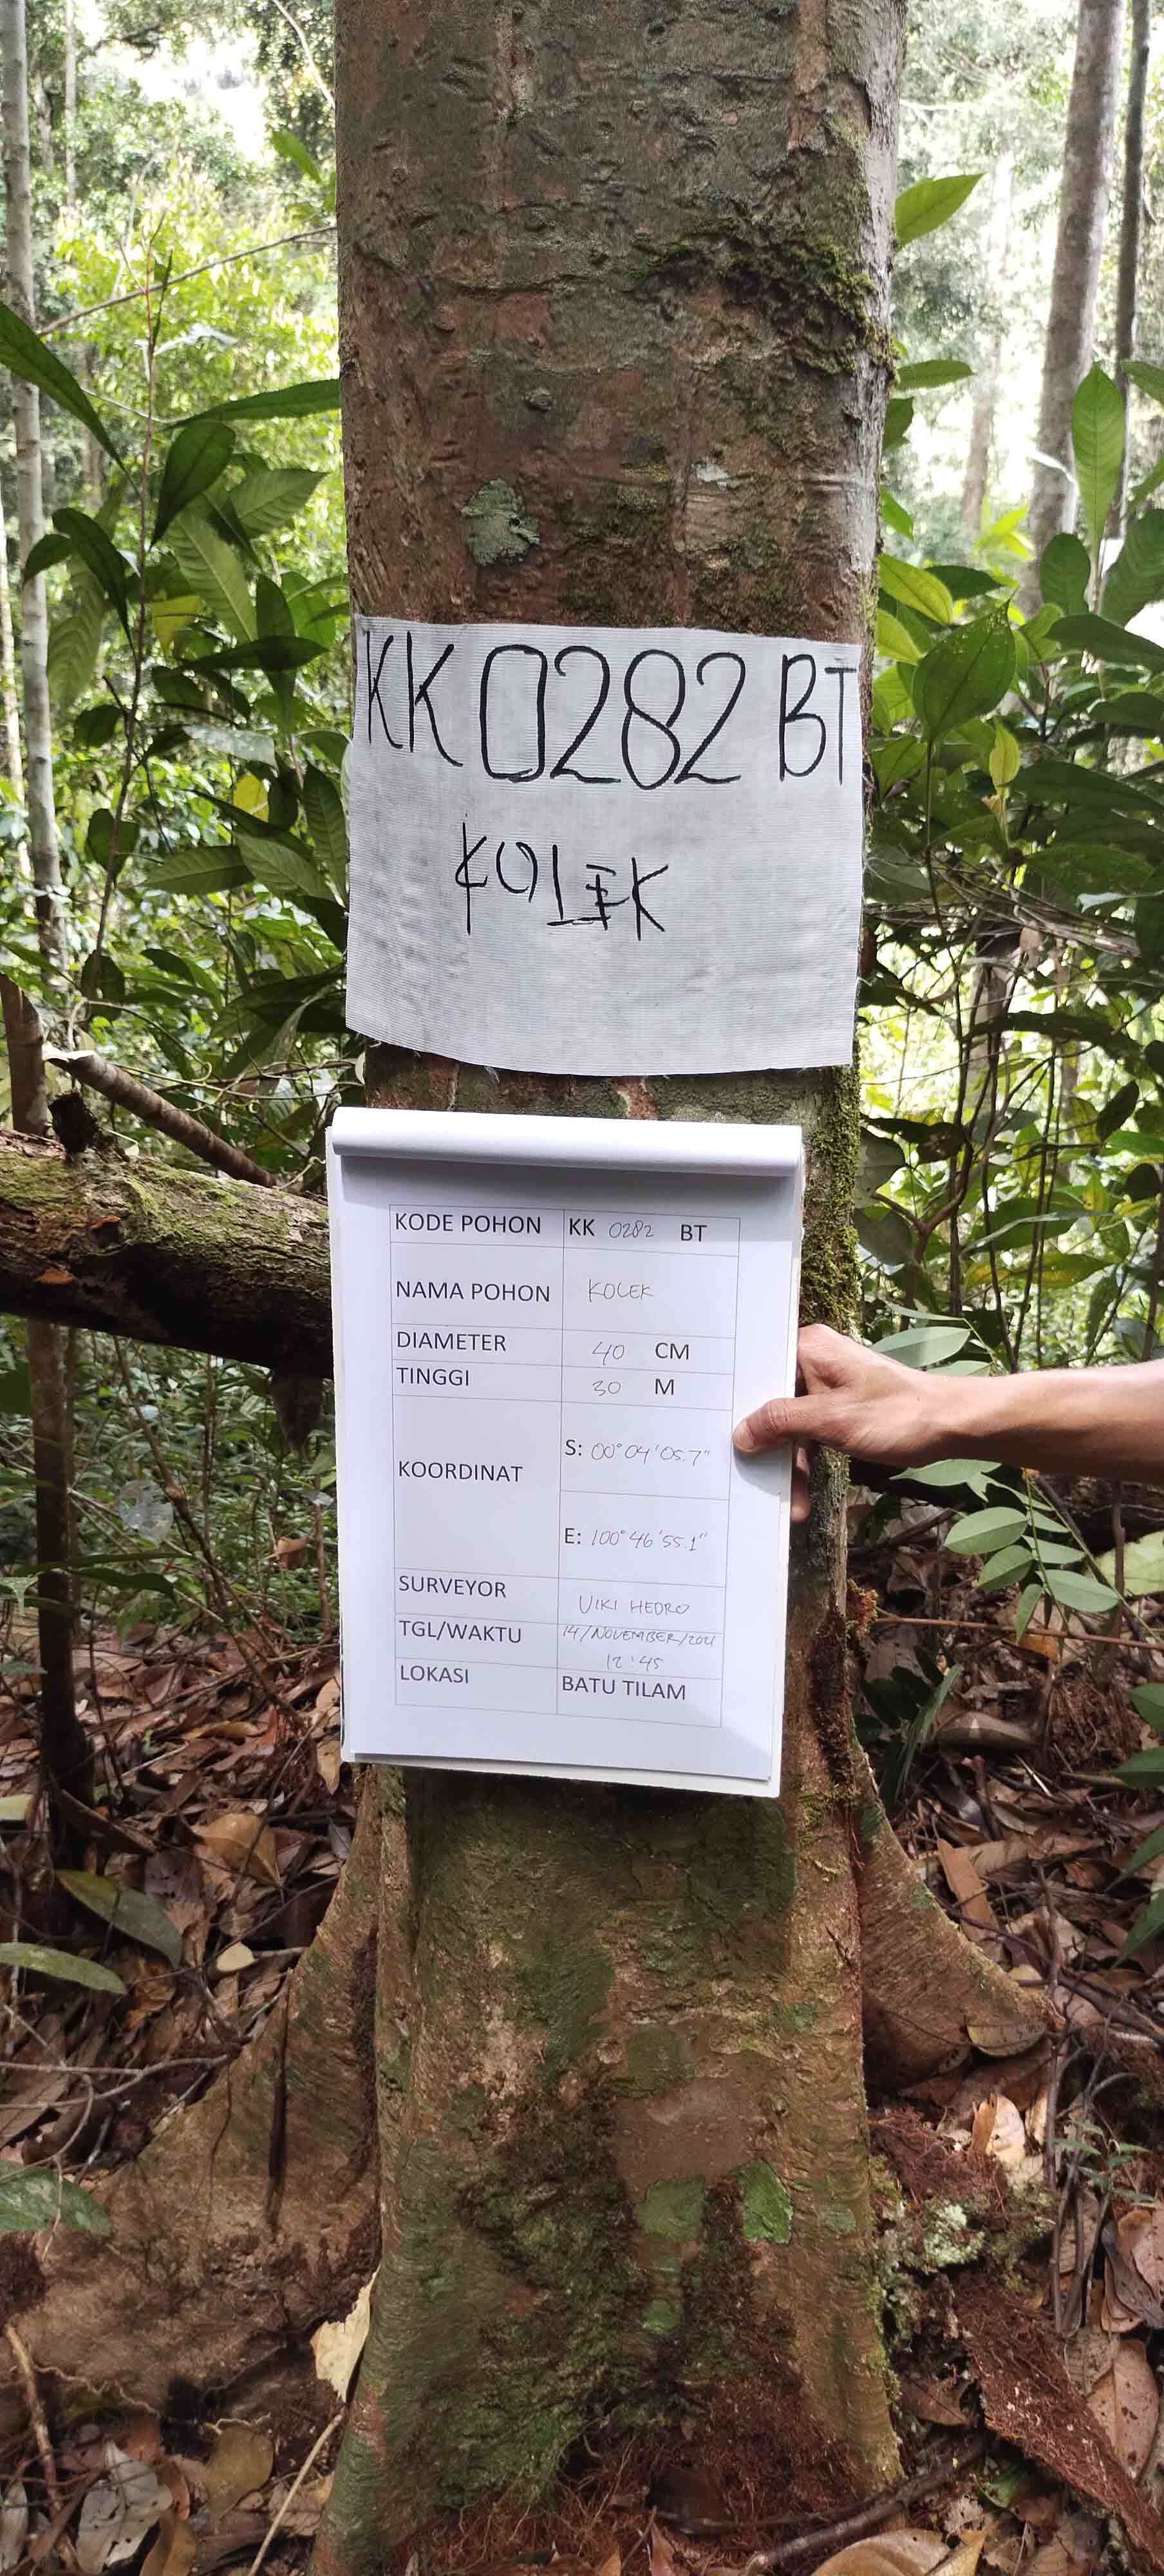 KK 0282 BT
KOLEK
KODE POHON KK 0282 BT
NAMA POHON KOLEK
DIAMETER 40 CM
TINGGI 30 M
KOORDINAT
S: 00°04'05.7"
E: 100°46'55.1"
SURVEYOR VIKI HEDRO
TGL/WAKTU 14/NOVEMBER/2021
12:45
LOKASI BATU TILAM